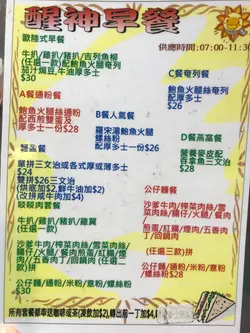 醒神早餐
歐陸式早餐
供應時間:07:00-11:30
牛扒/雞扒/豬扒/吉列魚柳
(任選一款)配鮑魚火腿奄列
茄汁焗豆,牛油厚多士
$30
C餐奄列餐
鮑魚火腿絲奄列
厚多士
$26
A餐通粉餐
鮑魚火腿絲通粉
配西煎雙蛋及
厚多士一份$28
B餐人氣餐
羅宋湯鮑魚火腿
螺絲粉
厚多士
$28
D餐燕窩餐
營養麥皮配
吞拿魚三文治
$28
輕盈餐
單拼三文治或各式厚或薄多士
$24
雙拼$26三文治
(烘底加$2,鮮牛油加$2)
(改拼咸牛肉加$4)
公仔麵餐
沙爹牛肉/榨菜肉絲/雪菜肉
絲/腸仔/火腿/餐肉
煎蛋/紅腸/煙肉/五香肉
丁/回鍋肉
(任選一款)$28
公仔麵/通粉/米粉/意粉
/螺絲粉
牛扒/雞扒/豬扒/雞翼
(任選一款)
沙爹牛肉/榨菜肉絲/雪菜肉絲/
腸仔/火腿/餐肉煎蛋/紅腸/煙肉
/五香肉丁/回鍋肉
(任選一款)$30
公仔麵/通粉/米粉/意粉
/螺絲粉
所有套餐都奉送咖啡或茶(凍飲加$2),轉出前一丁加$4